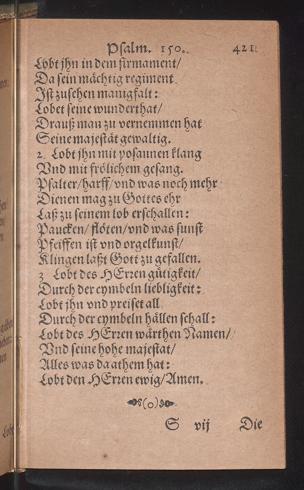 Psalm. 150. 421.
Lobt jhn in dem firmament/
Da sein mächtig regiment
Ist zusehen manigfalt:
Lobet seine wunderthat/
Drauß man zu vernemmen hat
Seine majestät gewaltig.
2. Lobt jhn mit posaunen klang
Vnd mit frölichem gesang.
Psalter/harff/vnd was noch mehr
Dienen mag zu Gottes ehr
Laß zu seinem lob erschallen:
Paucken/flöten/vnd was sunst
Pfeiffen ist vnd orgelkunst/
Klingen laßt Gott zu gefallen.
3. Lobt des HErren gütigkeit/
Durch der cymbeln liebligkeit:
Lobt jhn vnd preiset all
Durch der cymbeln hällen schall:
Lobt des HErren wärthen Namen/
Vnd seine hohe majestat/
Alles was da athem hat:
Lobt den HErren ewig/Amen.
(o)
S vij Die